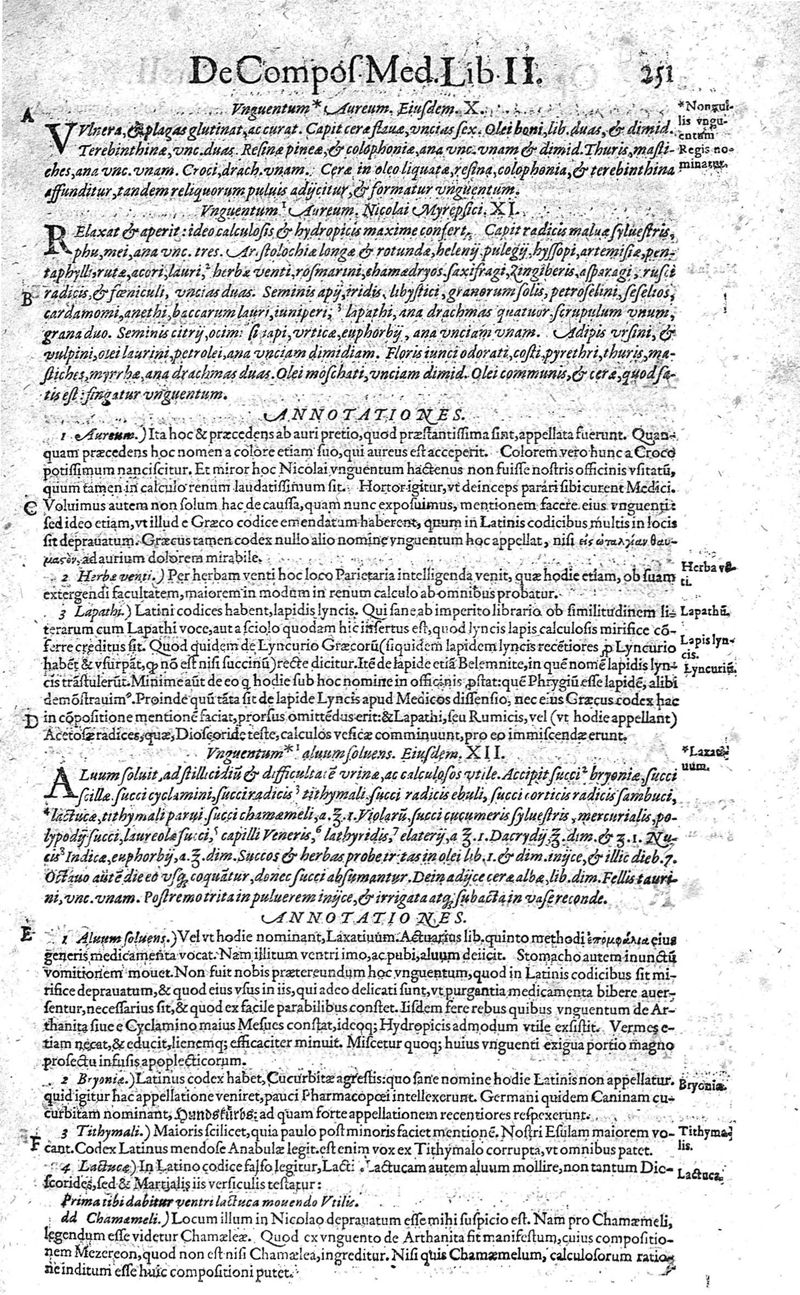 De Compos. Med. Lib. II. 251
A
Vnguentum* Aureum. Eiusdem. X.
VVlnera, & plagas glutinat, ac curat. Capit ceræ flauæ, vncias sex. Olei boni, lib. duas, & dimid.
Terebinthinæ, vnc. duas. Resinæ pineæ, & colophoniæ, ana vnc. vnam & dimid. Thuris, masti-
ches, ana vnc. vnam. Croci, drach. vnam. Ceræ in oleo liquatæ, resina, colophonia, & terebinthina
affunditur, tandem reliquorum puluis adijcitur, & formatur vnguentum.
*Nongui-
lis vngu-
entum
Regis no-
minatur.
Vnguentum¹ Aureum. Nicolai Myrepsici. XI.
RElaxat & aperit: ideo calculosis & hydropicis maxime confert. Capit radicis maluæ syluestris,
phu, mei, ana vnc. tres. Aristolochiæ longæ & rotundæ, helenij, pulegij, hyssopi, artemisiæ, pen-
taphylli, rutæ, acori, lauri,² herbæ venti, rosmarini, chamædryos, saxifragi, zingiberis, asparagi, rusci
B
radicis, & fœniculi, vncias duas. Seminis apij, iridis, libystici, granorum solis, petroselini, seselios,
cardamomi, anethi, baccarum lauri, iuniperi,³ lapathi, ana drachmas quatuor scrupulum vnum,
grana duo. Seminis citrij, ocimi sinapi, vrticæ, euphorbij, ana vnciam vnam. Adipis vrsini, &
vulpini, olei laurini, petrolei, ana vnciam dimidiam. Floris iunci odorati, costi, pyrethri, thuris, ma-
stiches, myrrhæ, ana drachmas duas. Olei moschati, vnciam dimid. Olei communis, & ceræ, quod sa-
tis est: fingatur vnguentum.
ANNOTATIONES.
1 Aureum.) Ita hoc & præcedens ab auri pretio, quod præstantissima sint, appellata fuerunt. Quan-
quam præcedens hoc nomen a colore etiam suo, qui aureus est acceperit. Colorem vero hunc a Croco
potissimum nanciscitur. Et miror hoc Nicolai vnguentum hactenus non fuisse nostris officinis vsitatũ,
quum tamen in calculo renum laudatissimum sit. Hortor igitur, vt deinceps parari sibi curent Medici.
C
Voluimus autem non solum hac de caussa, quam nunc exposuimus, mentionem facere eius vnguenti:
sed ideo etiam, vt illud e Græco codice emendatum haberent, quum in Latinis codicibus multis in locis
sit deprauatum. Græcus tamen codex nullo alio nomine vnguentum hoc appellat, nisi εἰς ὠταλγίαν θαυ-
μαστὸν, ad aurium dolorem mirabile.
2 Herbæ venti.) Per herbam venti hoc loco Parietaria intelligenda venit, quæ hodie etiam, ob suam
extergendi facultatem, maiorem in modum in renum calculo ab omnibus probatur.
Herba vē-
ti.
3 Lapathi.) Latini codices habent, lapidis lyncis. Qui sane, ab imperito librario ob similitudinem li-
terarum cum Lapathi voce, aut a sciolo quodam hic insertus est, quod lyncis lapis calculosis mirifice cō-
ferre creditus sit. Quod quidem de Lyncurio Græcorũ (siquidem lapidem lyncis recētiores ꝓ Lyncurio
habēt & vsurpāt, ꝙ nō est nisi succinũ) recte dicitur. Itē de lapide etiā Belemnite, in quē nomē lapidis lyn-
cis trāstulerũt. Minime aũt de eo ꝙ hodie sub hoc nomine in officinis ꝓstat: quē Phrygiũ esse lapidē, alibi
demōstrauim⁹. Proinde quũ tāta sit de lapide Lyncis apud Medicos dissensio, nec eius Græcus codex hac
D
in cōpositione mentionē faciat, prorsus omittēdus erit: & Lapathi, seu Rumicis, vel (vt hodie appellant)
Acetosæ radices, quæ, Dioscoride teste, calculos vesicæ comminuunt, pro eo immiscendæ erunt.
Lapathũ.
Lapis lyn-
cis.
Lyncuriũ.
Vnguentum*¹ aluum soluens. Eiusdem. XII.
*Laxati-
uum.
ALuum soluit, ad stillicidiũ & difficultatē vrinæ, ac calculosos vtile. Accipit succi² bryoniæ, succi
scillæ, succi cyclamini, succi radicis³ tithymali, succi radicis ebuli, succi corticis radicis sambuci,
⁴lactucæ, tithymali parui, succi chamæmeli, a. ℥.1. Violarũ, succi cucumeris syluestris, mercurialis, po-
lypodij succi, laureolæ succi,⁵ capilli Veneris,⁶ lathyridis,⁷ elaterij, a ℥.1. Dacrydij, ℥. dim. & ʒ.1. Nu-
cis⁸ Indicæ, euphorbij, a. ℥. dim. Succos & herbas probe tritas in olei lib.1. & dim. inijce, & illic dieb. 7.
Octauo autē die eo vsq; coquātur, donec succi absumantur. Dein adijce ceræ albæ, lib. dim. Fellis tauri-
ni, vnc. vnam. Postremo trita in puluerem inijce, & irrigata atq; subacta in vase reconde.
ANNOTATIONES.
E
1 Aluum soluens.) Vel vt hodie nominant, Laxatiuum. Actuarius lib. quinto methodi ἐπομφάλια eius
generis medicamenta vocat. Nam illitum ventri imo, ac pubi, aluum deiicit. Stomacho autem inunctũ
vomitionem mouet. Non fuit nobis prætereundum hoc vnguentum, quod in Latinis codicibus sit mi-
rifice deprauatum, & quod eius vsus in iis, qui adeo delicati sunt, vt purgantia medicamenta bibere auer-
sentur, necessarius sit, & quod ex facile parabilibus constet. Iisdem fere rebus quibus vnguentum de Ar-
thanita siue e Cyclamino maius Mesues constat, ideoq; Hydropicis admodum vtile exsistit. Vermes e-
tiam necat, & educit, lienemq; efficaciter minuit. Miscetur quoq; huius vnguenti exigua portio magno
profectu infusis apoplecticorum.
2 Bryoniæ.) Latinus codex habet, Cucurbitæ agrestis: quo sane nomine hodie Latinis non appellatur.
quid igitur hac appellatione veniret, pauci Pharmacopœi intellexerunt. Germani quidem Caninam cu-
curbitam nominant, Hundskürbs: ad quam forte appellationem recentiores respexerunt.
Bryoniæ.
3 Tithymali.) Maioris scilicet, quia paulo post minoris faciet mentionē. Nostri Esulam maiorem vo-
F
cant. Codex Latinus mendose Anabulæ legit. est enim vox ex Tithymalo corrupta, vt omnibus patet.
Tithyma-
lis.
4 Lactucæ) In Latino codice falso legitur, Lacti. Lactucam autem aluum mollire, non tantum Dio-
scorides, sed & Martialis iis versiculis testatur:
Lactuca.
Prima tibi dabitur ventri lactuca mouendo Vtilis.
dd Chamæmeli.) Locum illum in Nicolao deprauatum esse mihi suspicio est. Nam pro Chamæmeli,
legendum esse videtur Chamæleæ. Quod ex vnguento de Arthanita fit manifestum, cuius compositio-
nem Mezereon, quod non est nisi Chamælea, ingreditur. Nisi quis Chamæmelum, calculosorum ratio-
ne inditum esse huic compositioni putet.